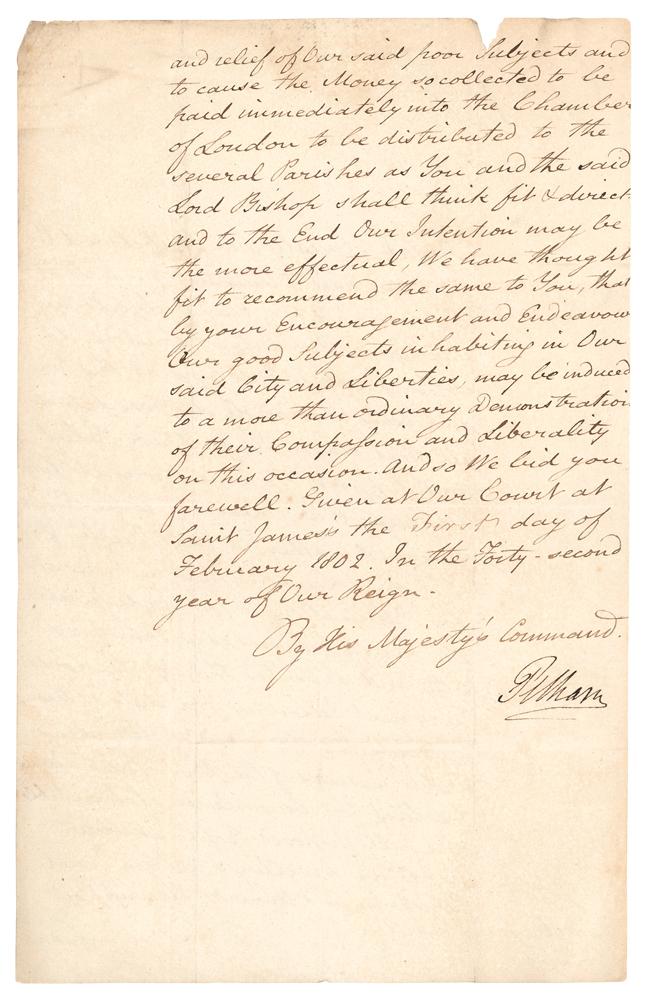 and relief of Our said poor Subjects and
to cause the Money so collected to be
paid immediately into the Chamber
of London to be distributed to the
several Parishes as You and the said
Lord Bishop shall think fit & direct
and to the End Our Intention may be
the more effectual, We have thought
fit to recommend the same to You, that
by your Encouragement and Endeavour
Our good Subjects inhabiting in Our
said City and Liberties, may be induced
to a more than ordinary Demonstration
of their Compassion and Liberality
on this occasion. And so We bid you
farewell. Given at Our Court at
Saint James's the First day of
February 1802. In the Forty-second
year of Our Reign.
By His Majesty's Command.
Pelham